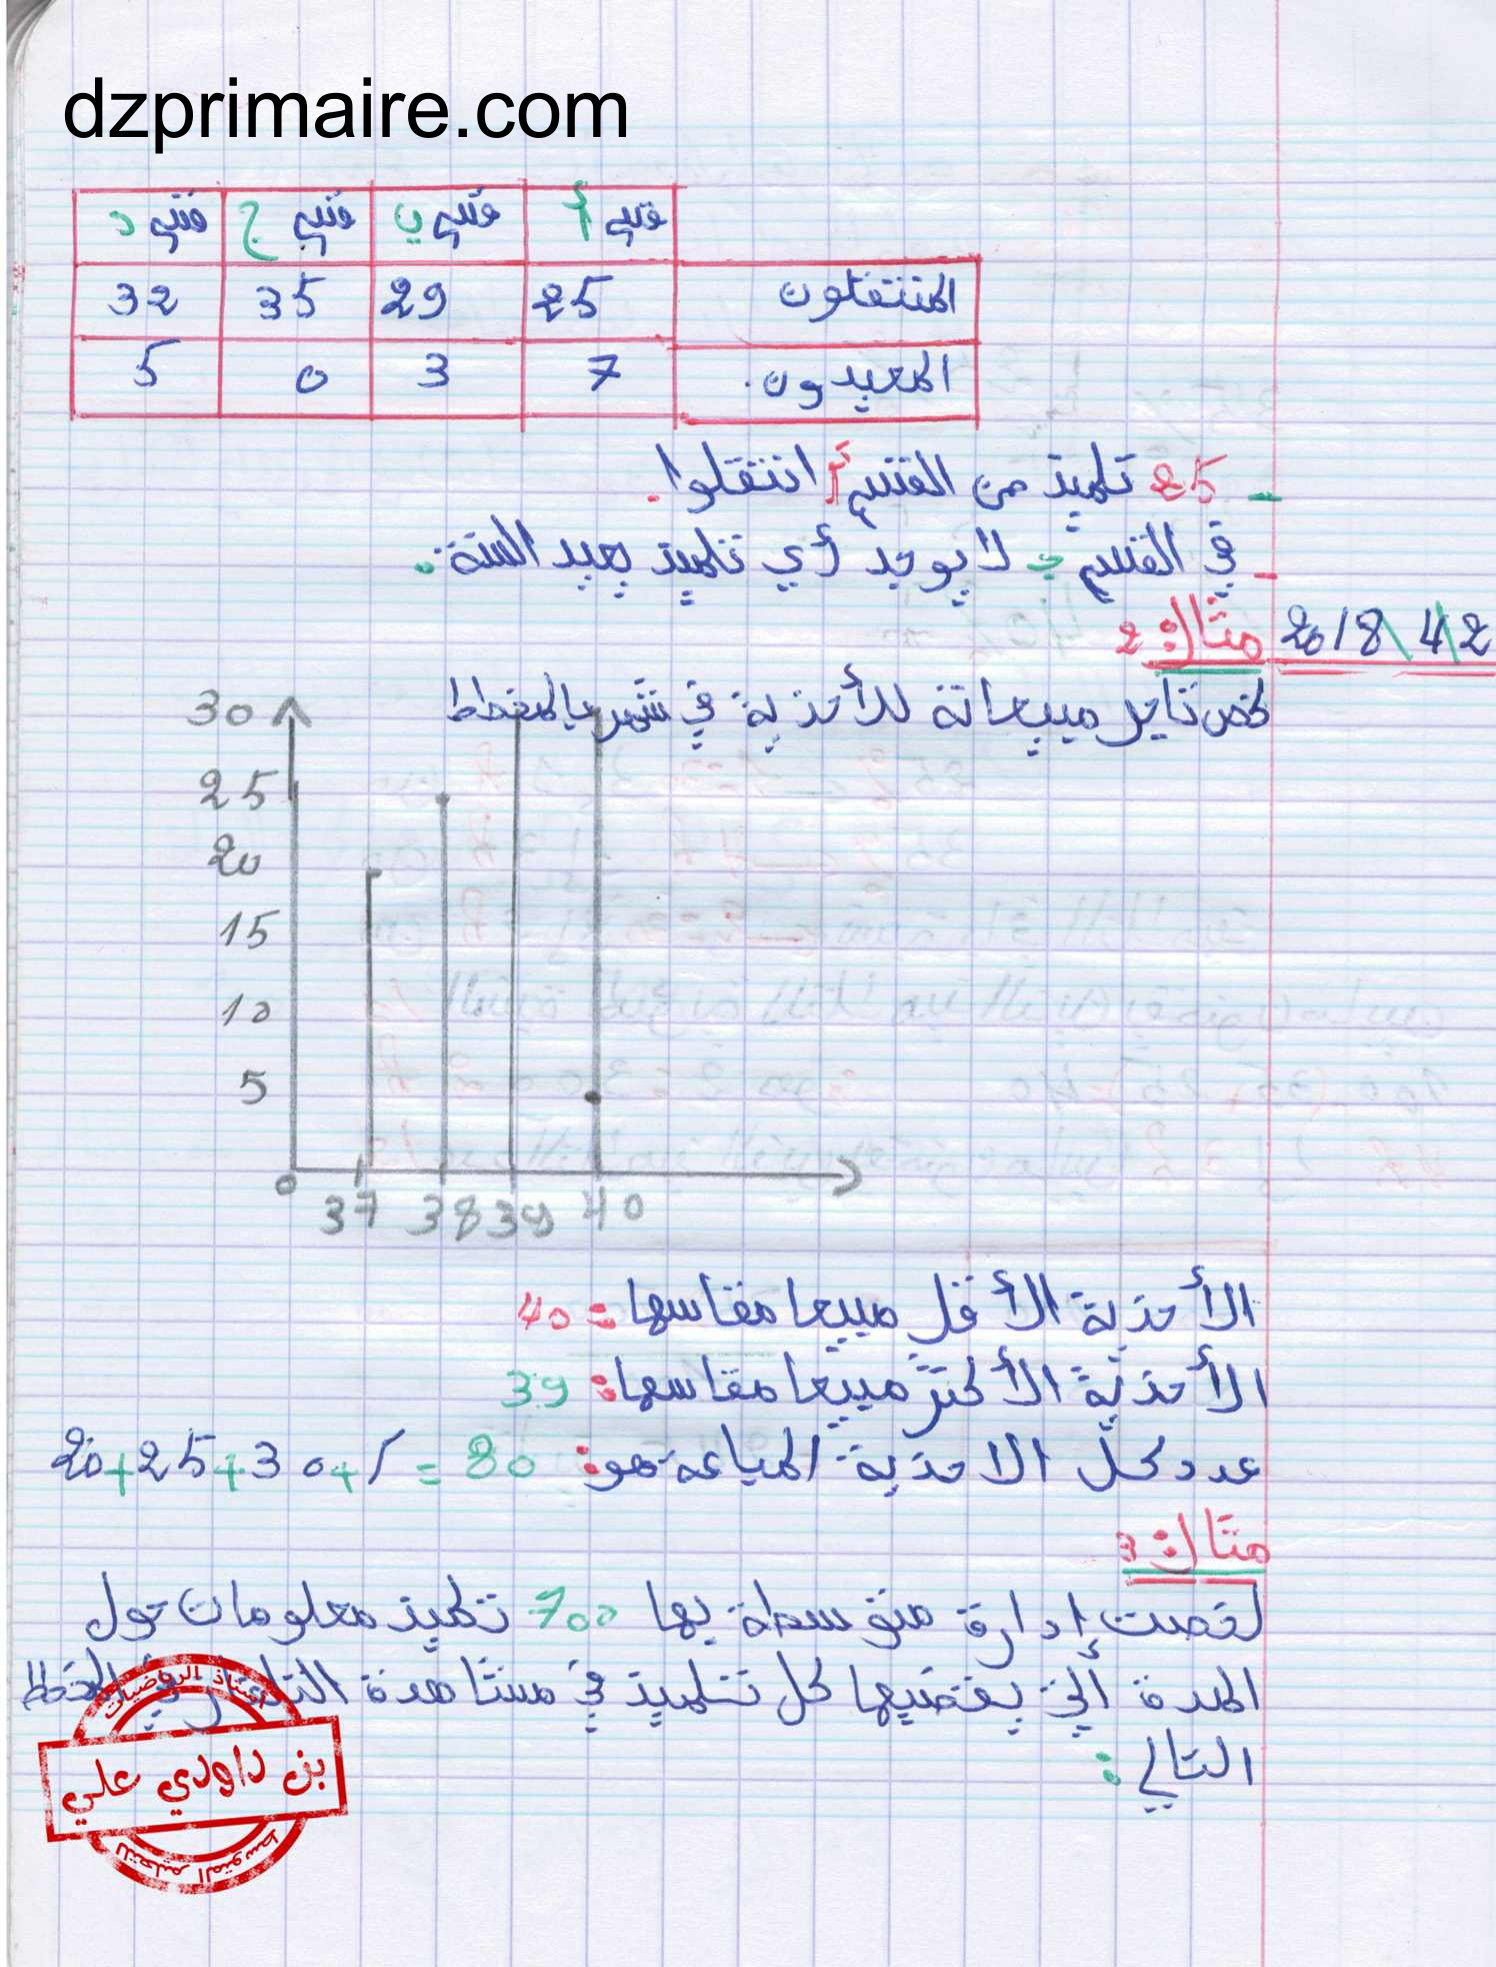 dzprimaire.com
قسم أ قسم ب قسم ج قسم د
المنتقلون 25 29 35 32
المعيدون. 7 3 0 5
- 25 تلميذ من القسم أ انتقلوا.
- في القسم ج لا يوجد أي تلميذ يعيد السنة.
2018\4\2 مثال: 2
لخص تاجر مبيعاته للأحذية في شهر بالمخطط
30
25
20
15
10
5
0 37 38 39 40
الأحذية الأقل مبيعا مقاسها: 40
الأحذية الأكثر مبيعا مقاسها: 39
عدد كل الاحذية المباعة هو: 80 = 20+25+30+
مثال: 3
لخصت إدارة متوسطة بها 700 تلميذ معلومات حول
المدة التي يقضيها كل تلميذ في مشاهدة التلفاز في المخطط
التالي:
أستاذ الرياضيات
بن داودي علي
للتعليم المتوسط